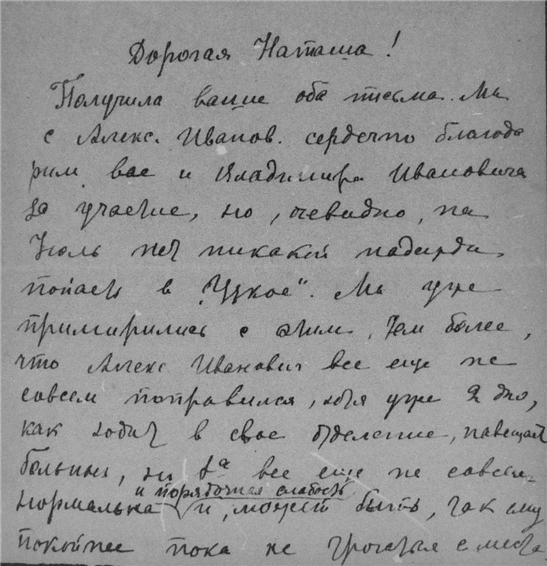 Дорогая Наташа!
Получила ваше оба письма. Мы
с Алекс. Иванов. сердечно благода
рим вас и Владимира Ивановича
за участие, но, очевидно, на
Июль нет никакой надежды
попасть в „Узкое“. Мы уже
примирились с этим, тем более,
что Алекс Иванович все еще не
совсем поправился, хотя уже 2 дня,
как ходит в свое отделение, навещает
больных, но tª все еще не совсем
и порядочная слабость
нормальна и, может быть, так ему
покойнее пока не трогаться с места